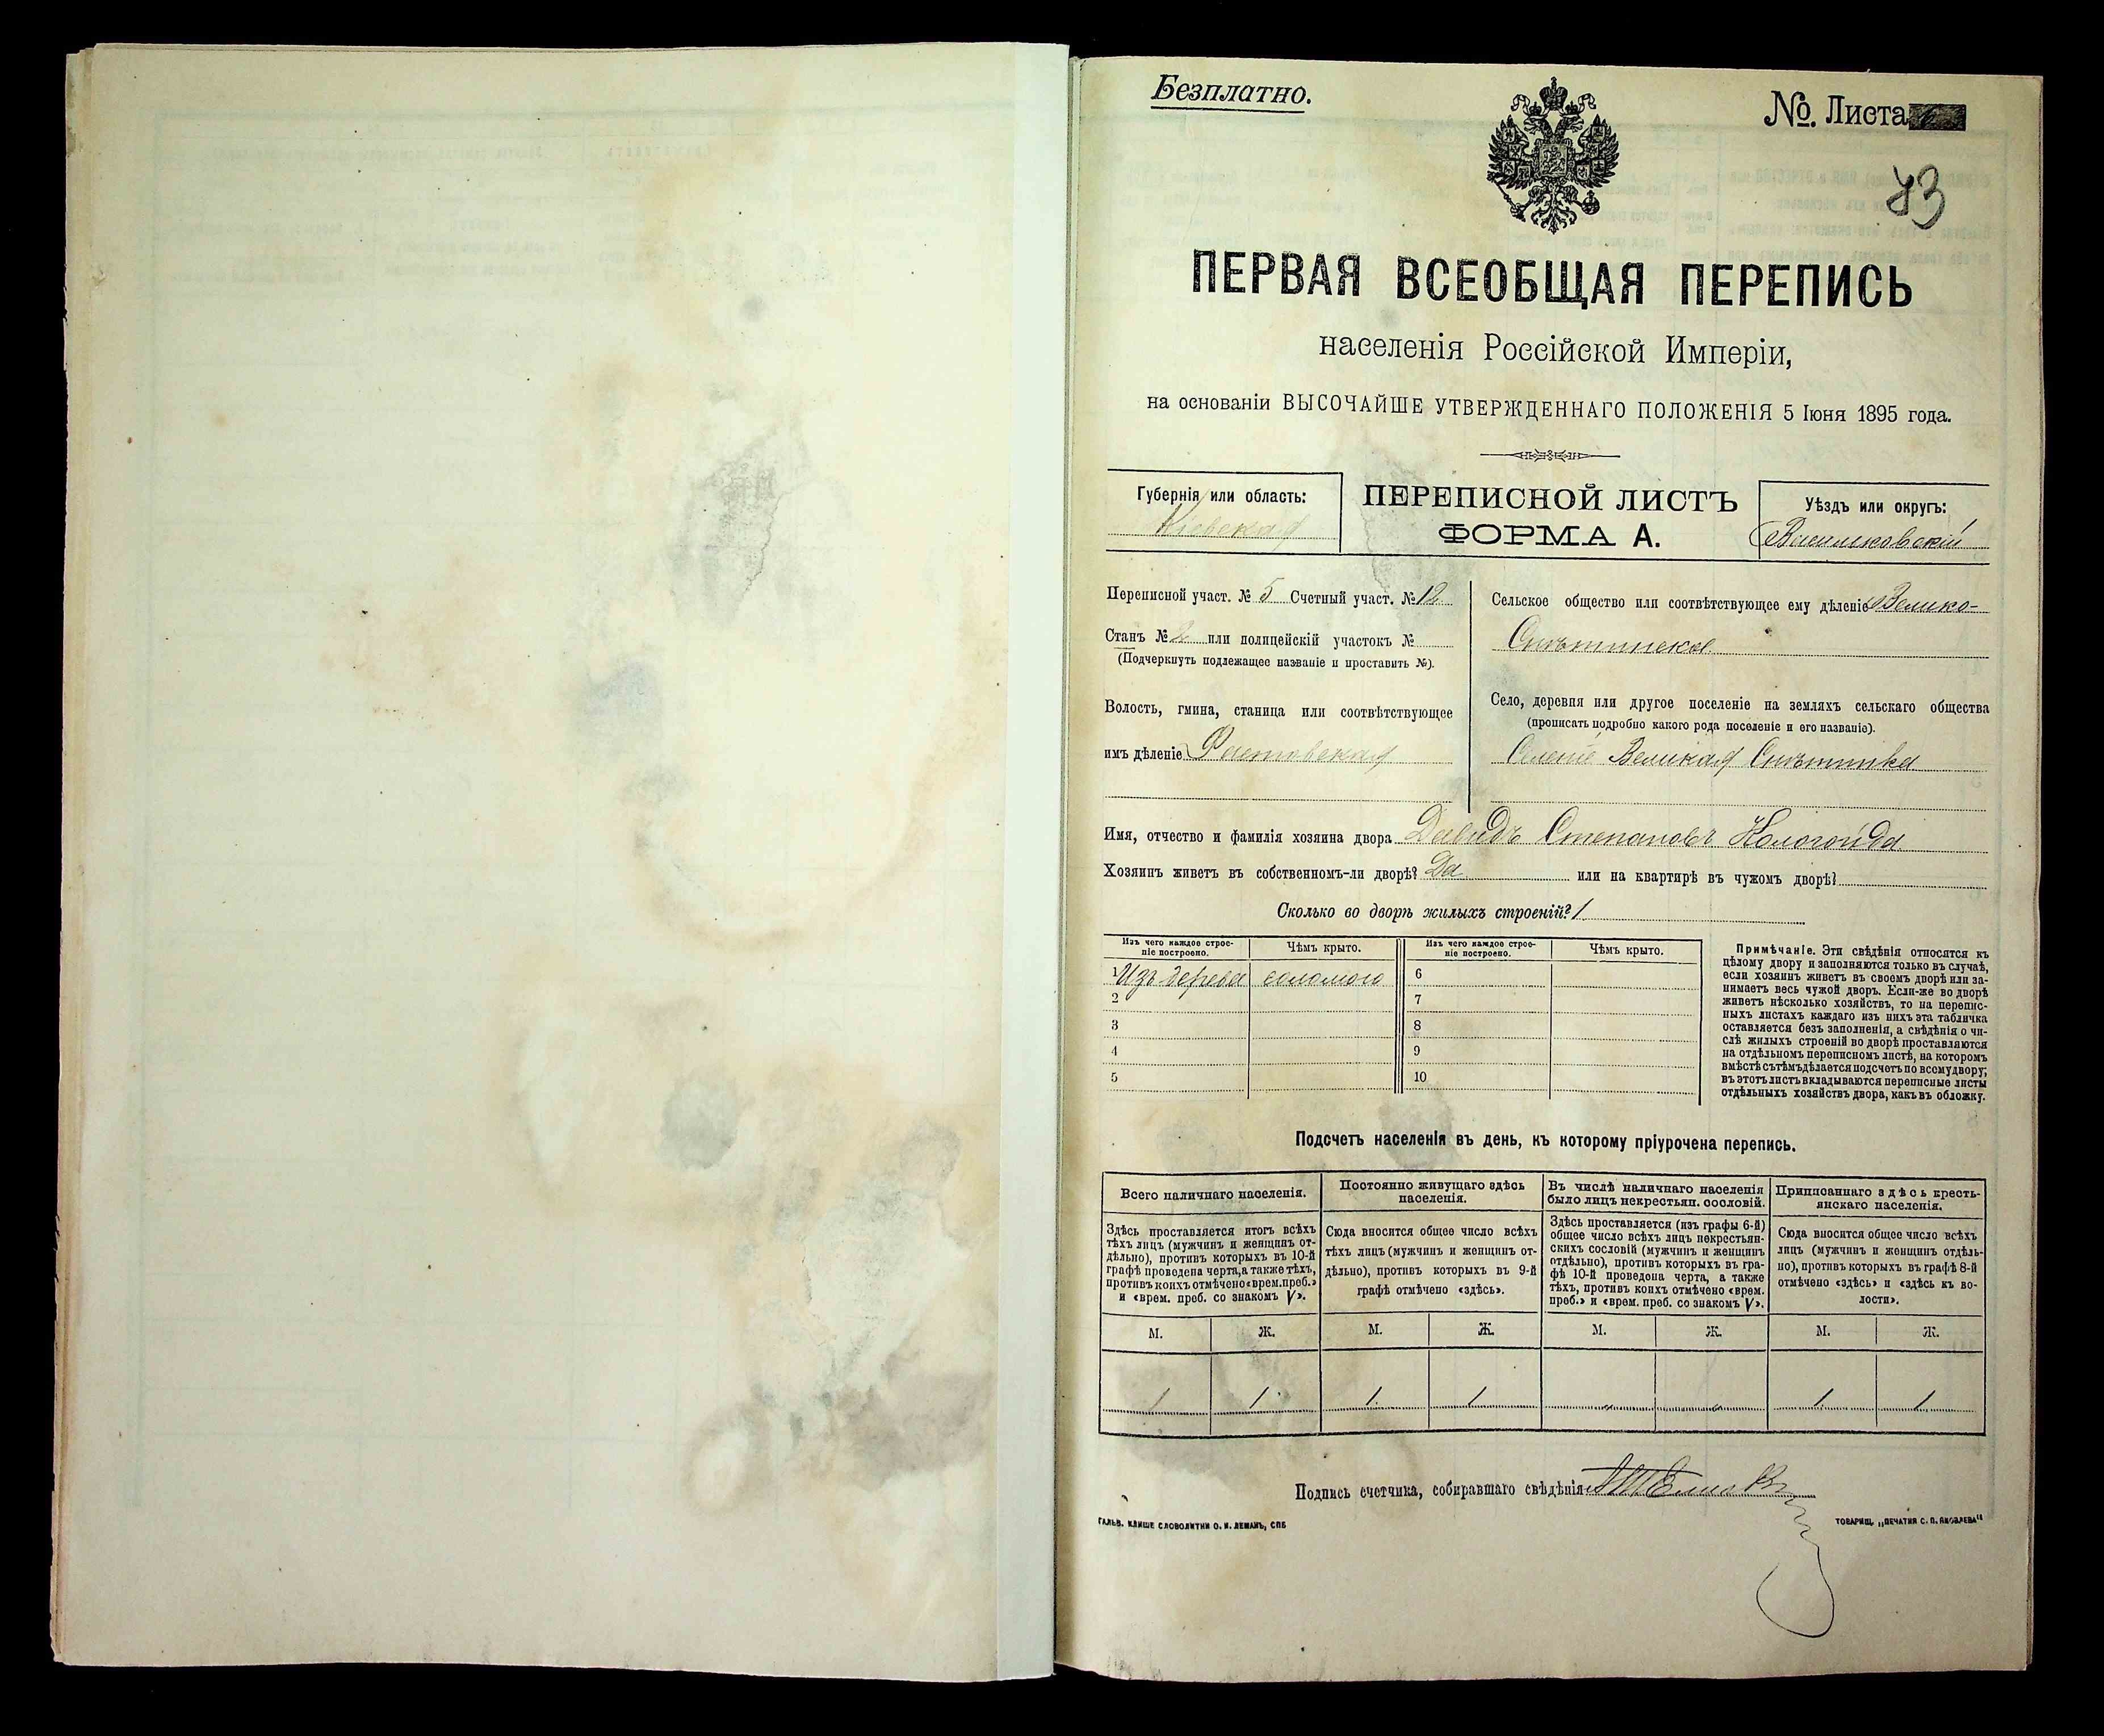 Безплатно.
№ Листа
43
ПЕРВАЯ ВСЕОБЩАЯ ПЕРЕПИСЬ
населенія Россійской Имперіи,
на основаніи ВЫСОЧАЙШЕ УТВЕРЖДЕННАГО ПОЛОЖЕНІЯ 5 Іюня 1895 года.
Губернія или область:
Кіевская
ПЕРЕПИСНОЙ ЛИСТЪ
ФОРМА А.
Уѣздъ или округъ:
Васильковскій
Переписной участ. № 5 Счетный участ. № 12
Станъ № 2 или полицейскій участокъ №
(Подчеркнуть подлежащее названіе и проставить №).
Волость, гмина, станица или соотвѣтствующее
имъ дѣленіе Фастовская
Сельское общество или соотвѣтствующее ему дѣленіе Велико-
Снѣтинское
Село, деревня или другое поселеніе на земляхъ сельскаго общества
(прописать подробно какого рода поселеніе и его названіе).
Великая Снѣтинка
Имя, отчество и фамилія хозяина двора Давидъ Степановъ
Хозяинъ живетъ въ собственномъ-ли дворѣ? Да или на квартирѣ въ чужомъ дворѣ?
Сколько во дворѣ жилыхъ строеній? 1
Изъ чего каждое строе-
ніе построено.
Чѣмъ крыто.
Изъ чего каждое строе-
ніе построено.
Чѣмъ крыто.
1 Изъ дерева соломою 6
2 7
3 8
4 9
5 10
Примѣчаніе. Эти свѣдѣнія относятся къ
цѣлому двору и заполняются только въ случаѣ,
если хозяинъ живетъ въ своемъ дворѣ или за-
нимаетъ весь чужой дворъ. Если-же во дворѣ
живетъ нѣсколько хозяйствъ, то на перепис-
ныхъ листахъ каждаго изъ нихъ эта табличка
оставляется безъ заполненія, а свѣдѣнія о чи-
слѣ жилыхъ строеній во дворѣ проставляются
на отдѣльномъ переписномъ листѣ, на которомъ
вмѣстѣ съ тѣмъ дѣлается подсчетъ по всему двору;
въ этотъ листъ вкладываются переписные листы
отдѣльныхъ хозяйствъ двора, какъ въ обложку.
Подсчетъ населенія въ день, къ которому пріурочена перепись.
Всего наличнаго населенія.
Здѣсь проставляется итогъ всѣхъ
тѣхъ лицъ (мужчинъ и женщинъ от-
дѣльно), противъ которыхъ въ 10-й
графѣ проведена черта, а также тѣхъ,
противъ коихъ отмѣчено «врем. преб.»
и «врем. преб. со знакомъ V».
Постоянно живущаго здѣсь
населенія.
Сюда вносится общее число всѣхъ
тѣхъ лицъ (мужчинъ и женщинъ от-
дѣльно), противъ которыхъ въ 9-й
графѣ отмѣчено «здѣсь».
Въ числѣ наличнаго населенія
было лицъ некрестьян. сословій.
Здѣсь проставляется (изъ графы 6-й)
общее число всѣхъ лицъ некрестьян-
скихъ сословій (мужчинъ и женщинъ
отдѣльно), противъ которыхъ въ гра-
фѣ 10-й проведена черта, а также
тѣхъ, противъ коихъ отмѣчено «врем.
преб.» и «врем. преб. со знакомъ V».
Приписаннаго здѣсь кресть-
янскаго населенія.
Сюда вносится общее число всѣхъ
лицъ (мужчинъ и женщинъ отдѣль-
но), противъ которыхъ въ графѣ 8-й
отмѣчено «здѣсь» и «здѣсь къ во-
лости».
М. Ж. М. Ж. М. Ж. М. Ж.
1 1 1 1 " " 1 1
Подпись счетчика, собиравшаго свѣдѣнія
ГАЛЬВ. КЛИШЕ СЛОВОЛИТНИ О. И. ЛЕМАНЪ, СПБ
ТОВАРИЩ. „ПЕЧАТНЯ С. П. ЯКОВЛЕВА"